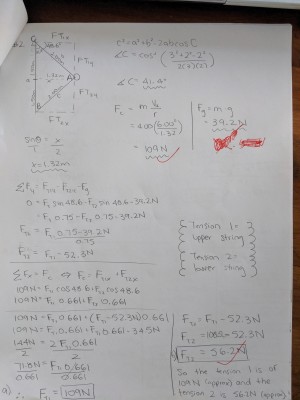 c²=a²+b²-2abcosC
∠C = cos⁻¹ (3²+2²-2² / 2(3)(2))
∠C = 41.4°
F꜀ = m v²/r
= 4.00 (6.00²/1.32)
= 109N
Fg = m·g
= 39.2N
sinθ = x/2
x=1.32m
ΣFy = FT1y - FT2y - Fg
0 = FT1 sin 48.6 - FT2 sin 48.6 - 39.2N
FT1 0.75 - FT2 0.75 - 39.2N
FT2 = FT1 0.75 - 39.2N / 0.75
FT2 = FT1 - 52.3N
Tension 1 =
upper string
Tension 2 =
lower string
ΣFx = F꜀ ⇔ F꜀ = FT1x + FT2x
109N = FT1 cos48.6 + FT2 cos48.6
109N = FT1 0.661 + FT2 0.661
109N = FT1 0.661 + (FT1 - 52.3N) 0.661
109N = FT1 0.661 + FT1 0.661 - 34.5N
144N / 2 = 2 FT1 0.661 / 2
71.8N / 0.661 = FT1 0.661 / 0.661
a) ∴ FT1 = 109N
FT2 = FT1 - 52.3N
FT2 = 108.5 - 52.3N
b) FT2 = 56.2N
So the tension 1 is
109N (approx) and the
tension 2 is 56.2N (approx)